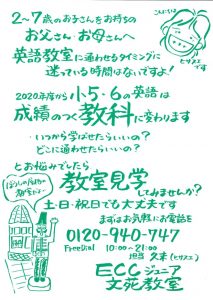 2〜7歳のお子さんをお持ちの
お父さん・お母さんへ
こんにちは
ヒサスエです
英語教室に通わせるタイミングに
迷っている時間はないですよ!
2020年度から小5・6の英語は
成績のつく教科に変わります
・いつから学ばせたらいいの?
・どこに通わせたらいいの?
とお悩みでしたら
教室見学してみませんか?
ぼうしの屋根の
教室だよ〜
土・日・祝日でも大丈夫です
まずはお気軽にお電話を
0120-940-747
FreeDial 10:00〜21:00
担当 久末(ヒサスエ)
ECCジュニア
文苑教室